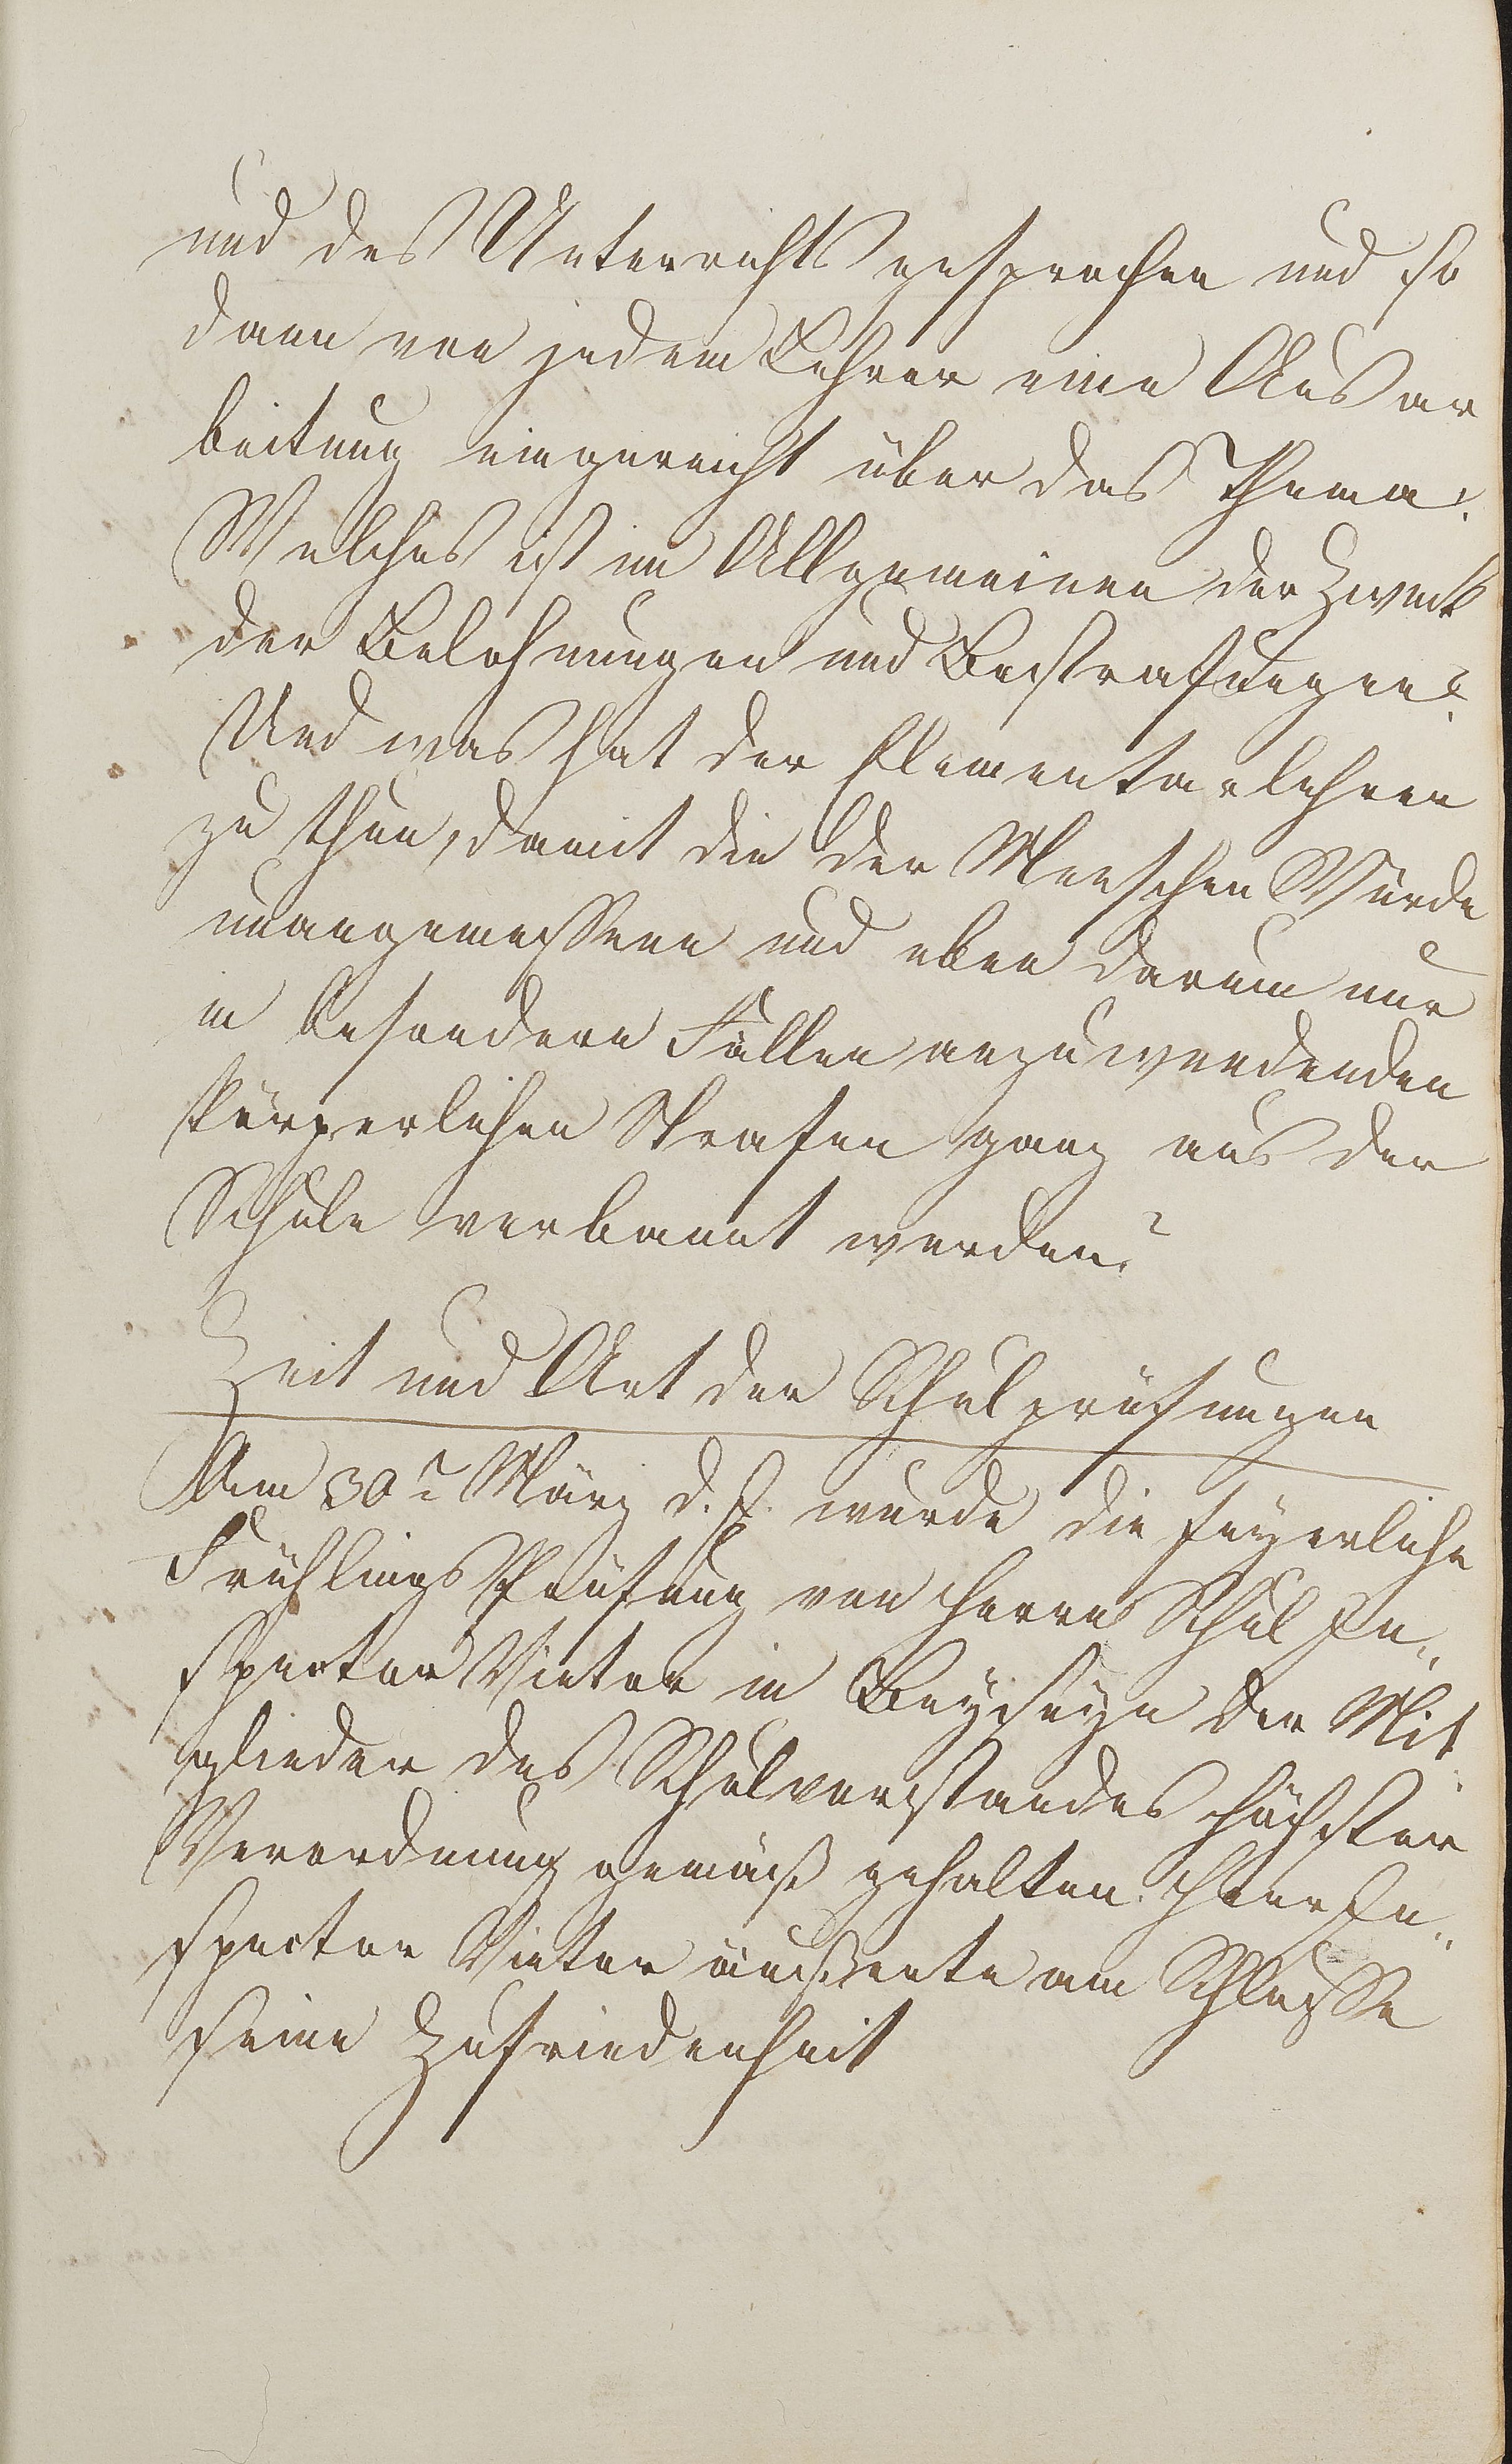 und des Unterrichts gesprochen und so
dann von jedem Lehrer eine Ausar
beitung eingereicht über das Thema:
Welches ist im Allgemeinen der Zweck
der Belohnungen und Bestrafungen?
Und was hat der Elementarlehrer
zu thun, damit die der Menschen Würde
unangemessene und eben darum nur
in besondern Fällen anzuwendenden
körperlichen Strafen ganz aus der
Schule verbannt werden?
Zeit und Art der Schulprüfungen
Am 30n März d. J. wurde die feyerliche
Frühlings Prüfung von Herrn Schul In„
spector Vietor in Beyseyn der Mit
glieder des Schulvorstandes höchster
Verordnung gemäß gehalten. Herr In„
spector Vietor äußerte am Schlusse
seine Zufriedenheit